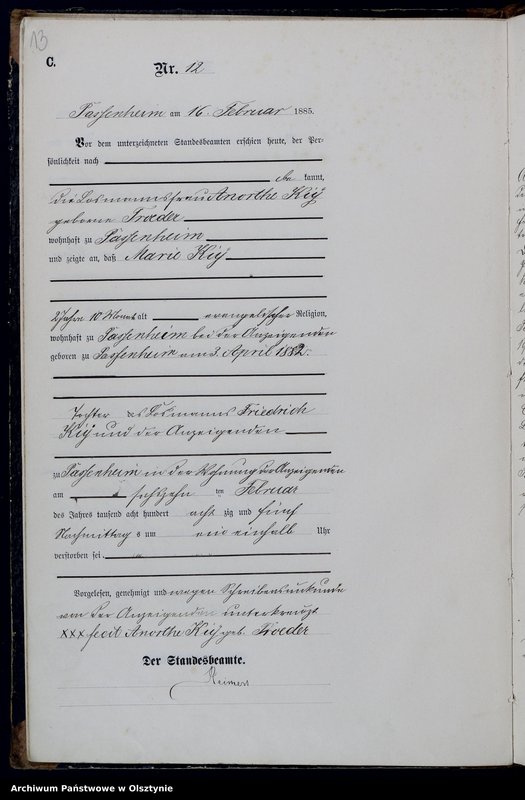 13
C.
Nr. 12
Passenheim am 16. Februar 1885.
Vor dem unterzeichneten Standesbeamten erschien heute, der Per-
sönlichkeit nach
be kannt,
die Losmannsfrau Anorthe Kiy
geborene Froeder
wohnhaft zu Passenheim
und zeigte an, daß Marie Kiy
2 Jahre 10 Monat alt evangelischer Religion,
wohnhaft zu Passenheim bei der Anzeigenden
geboren zu Passenheim am 3. April 1882.
Tochter des Losmanns Friedrich
Kiy und der Anzeigenden
zu Passenheim in der Wohnung der Anzeigenden
am sechzehn ten Februar
des Jahres tausend acht hundert acht zig und fünf
Nachmittag s um ein einhalb Uhr
verstorben sei.
Vorgelesen, genehmigt und wegen Schreibensunkunde
von der Anzeigenden unterkreuzt
XXX fecit Anorthe Kiy geb. Froeder
Der Standesbeamte.
Reimer
Archiwum Państwowe w Olsztynie